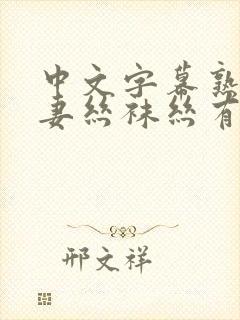 中文字幕熟
妻丝袜丝有
邢文祥